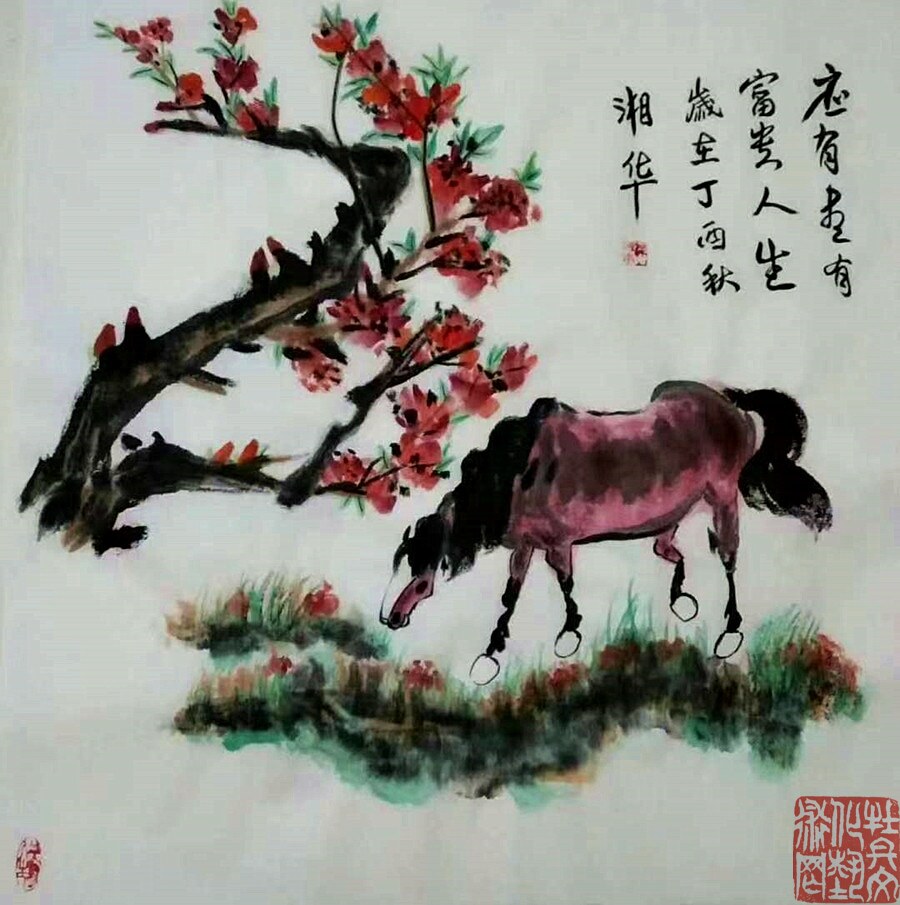 应有尽有
富贵人生
歲在丁酉秋
湘华